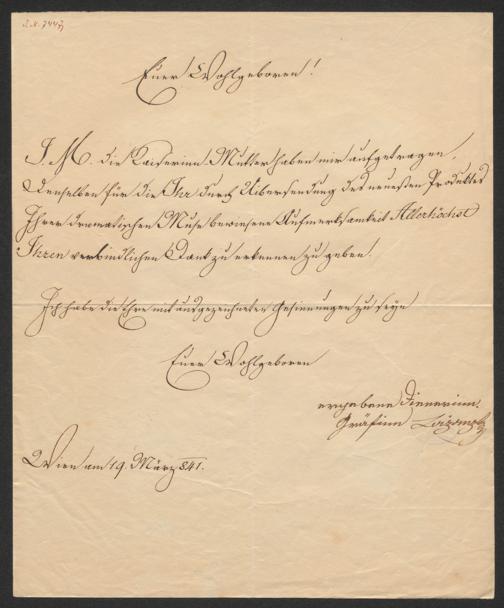 I.N. 7447
Euer Wohlgeboren!
I. M. die Kaiserinn Mutter haben mir aufgetragen,
Denselben für die Ihr durch Übersendung des neuesten Produktes
Ihrer dramatischen Muse bewiesene Aufmerksamkeit Allerhöchst
Ihren verbindlichen Dank zu erkennen zu geben.
Ich habe die Ehre mit ausgezeichneten Gesinnungen zu seyn
Euer Wohlgeboren
ergebene Dienerinn.
Gräfinn
Wien am 19. März 841.